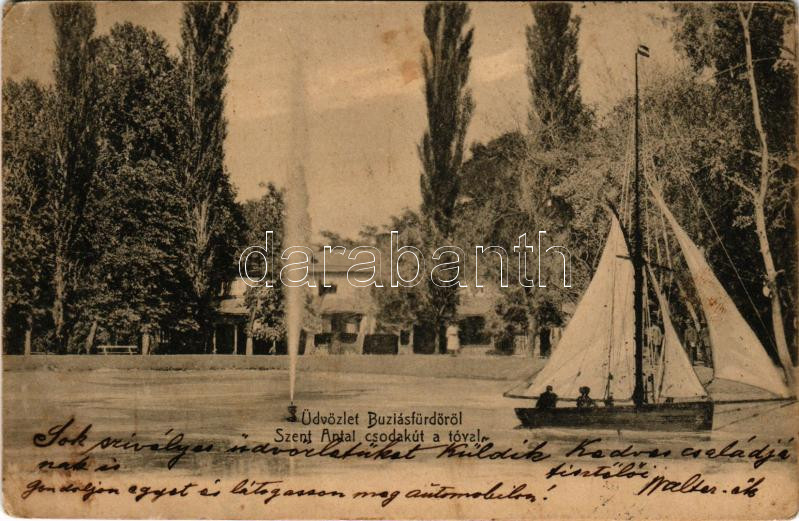 darabanth.com
Üdvözlet Buziásfürdőről
Szent Antal csodakút a tóval.
Sok szivélyes üdvözletüket Küldik Kedves családjá
nak is tisztelői
Gondoljon egyet és látogasson meg automobilon! Walter-ék